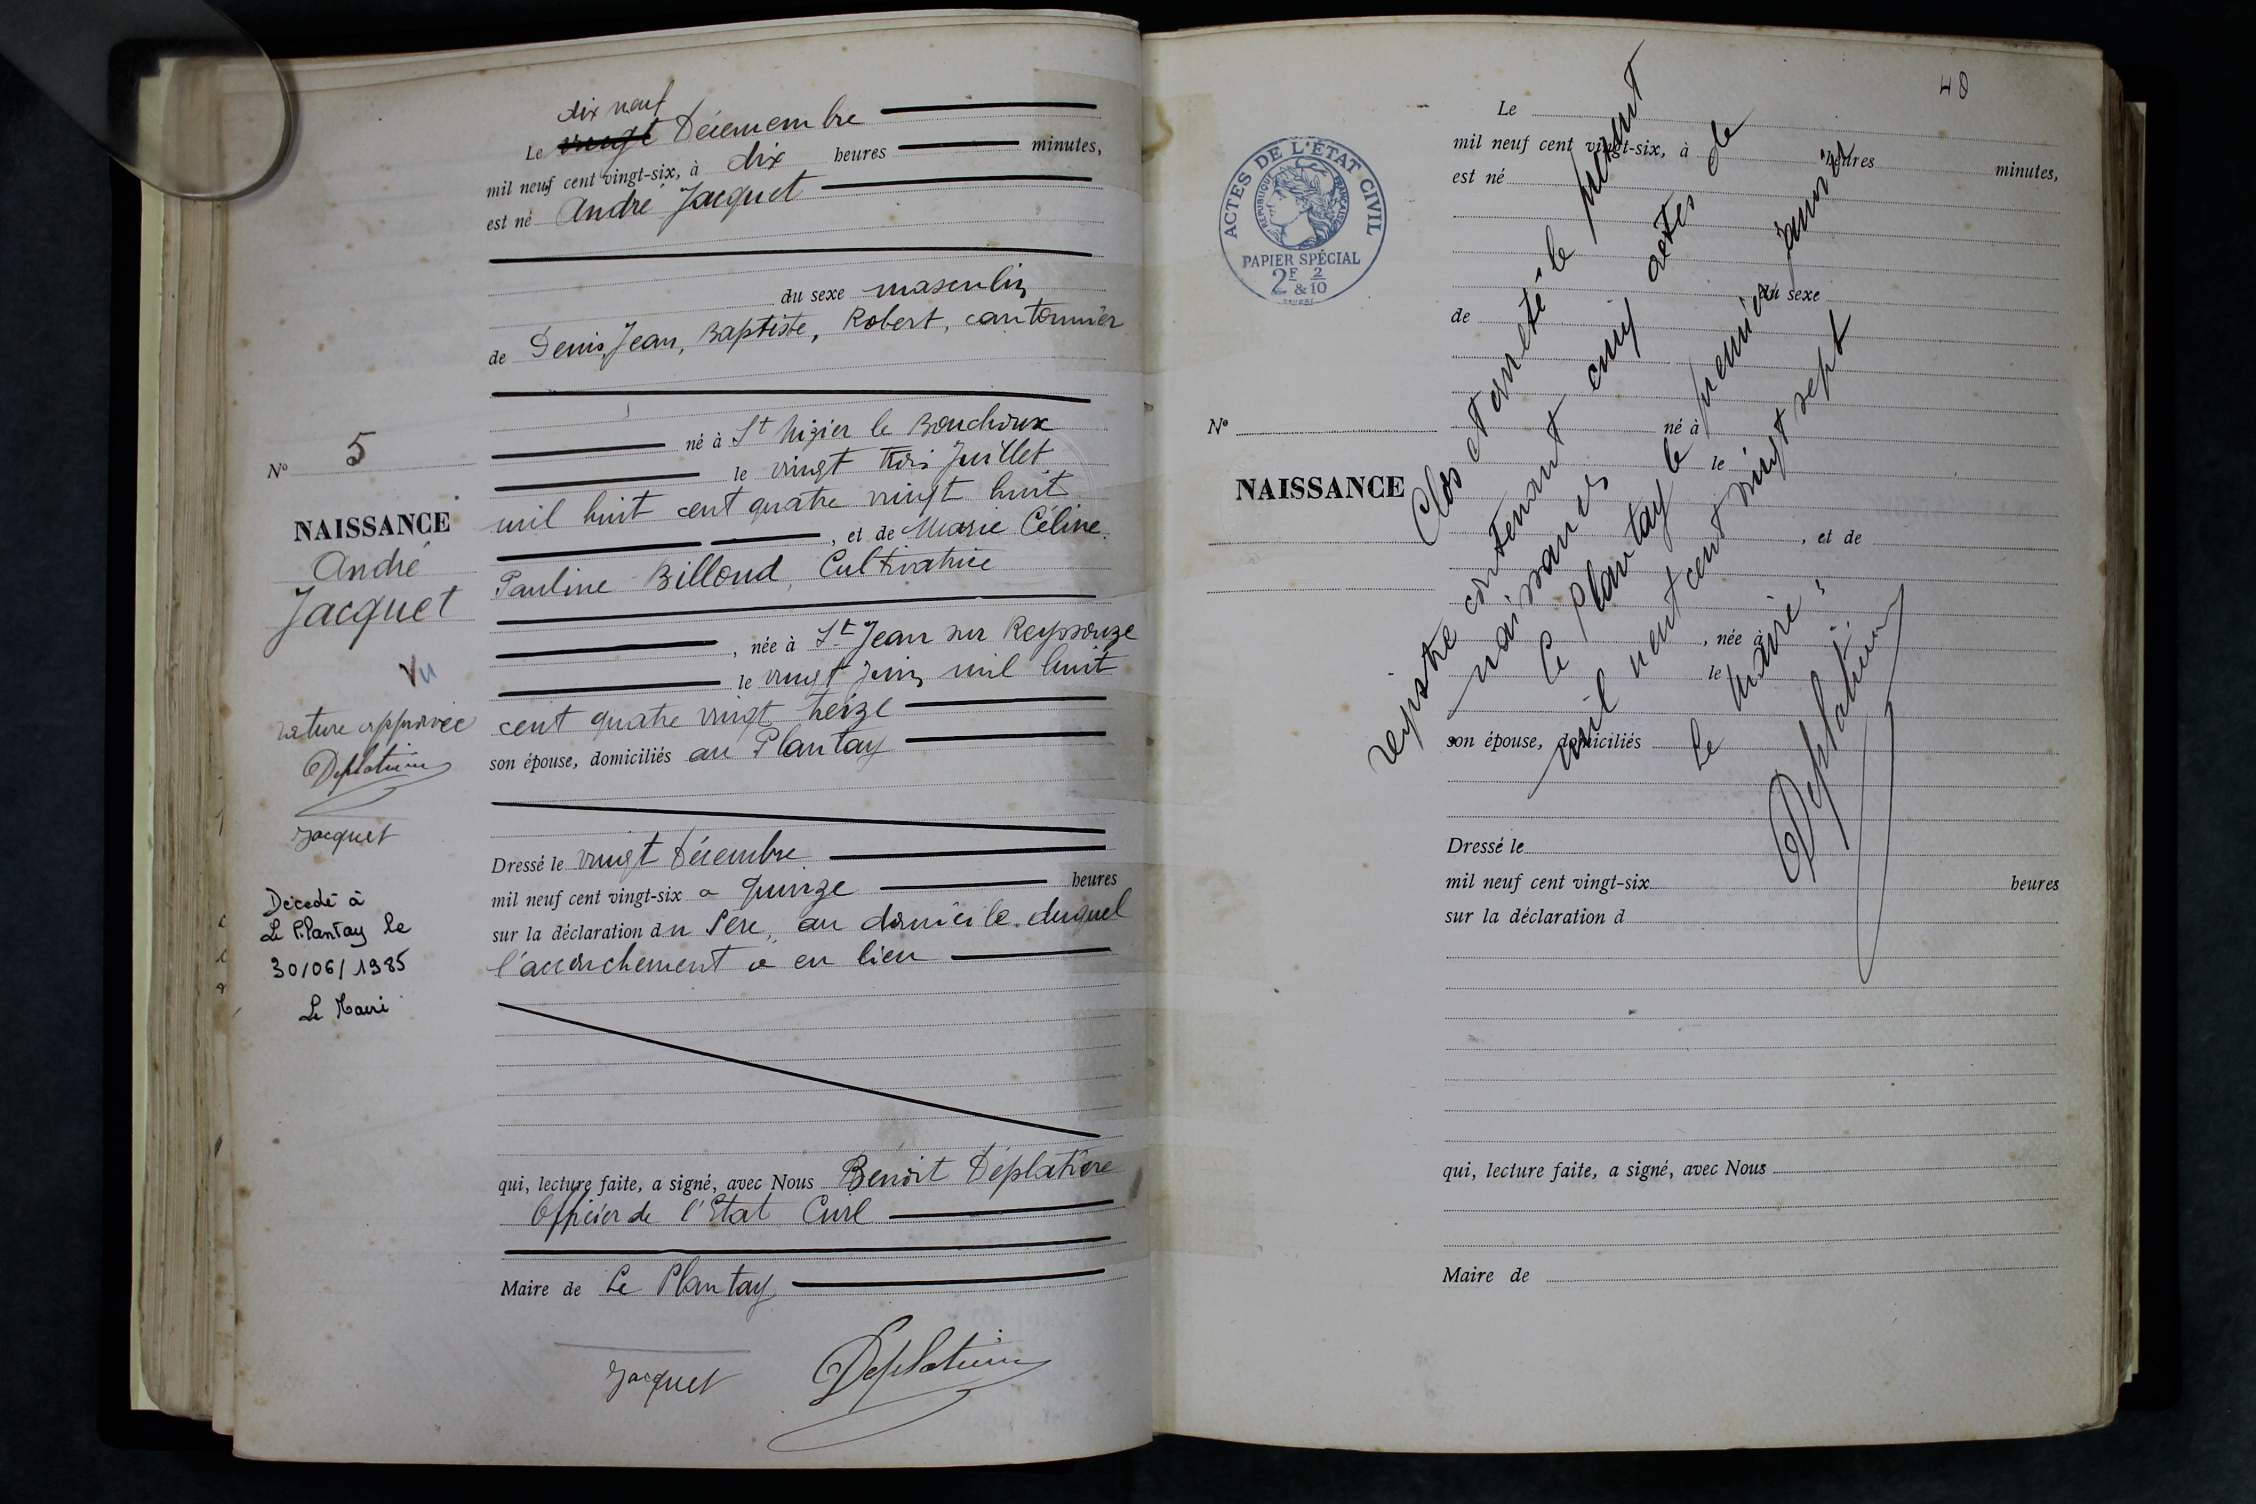 dix neuf
Le vingt Décemembre
mil neuf cent vingt-six, à dix heures minutes,
est né André Jacquet
du sexe masculin
de Denis, Jean, Baptiste, Robert, cantonnier
né à St Nizier le Bouchoux
le vingt trois Juillet
mil huit cent quatre vingt huit
, et de Marie Céline
Pauline Billoud, Cultivatrice
, née à St Jean sur Reyssouze
le vingt Juin mil huit
cent quatre vingt treize
son épouse, domiciliés au Plantay
Dressé le vingt Décembre
mil neuf cent vingt-six a quinze heures
sur la déclaration du Père, au domicile duquel
l'accouchement a eu lieu
qui, lecture faite, a signé, avec Nous Benoit Déplatière
Officier de l'Etat Civil
Maire de Le Plantay
Jacquet Deplatière
N° 5
NAISSANCE
André
Jacquet
Vu
rature approuvée
Deplatière
Jacquet
Décédé à
Le Plantay le
30/06/1985
Le Maire
40
ACTES DE L'ÉTAT CIVIL
RÉPUBLIQUE FRANÇAISE
PAPIER SPÉCIAL
2F & 2/10
N°
NAISSANCE
Le
mil neuf cent vingt-six, à heures minutes,
est né
du sexe
de
né à
le
, et de
, née à
le
son épouse, domiciliés
Dressé le
mil neuf cent vingt-six heures
sur la déclaration d
qui, lecture faite, a signé, avec Nous
Maire de
Clos et arrêté le présent
registre contenant cinq actes de
naissances
Le Plantay le premier janvier
mil neuf cent vingt sept
Le Maire :
Deplatière